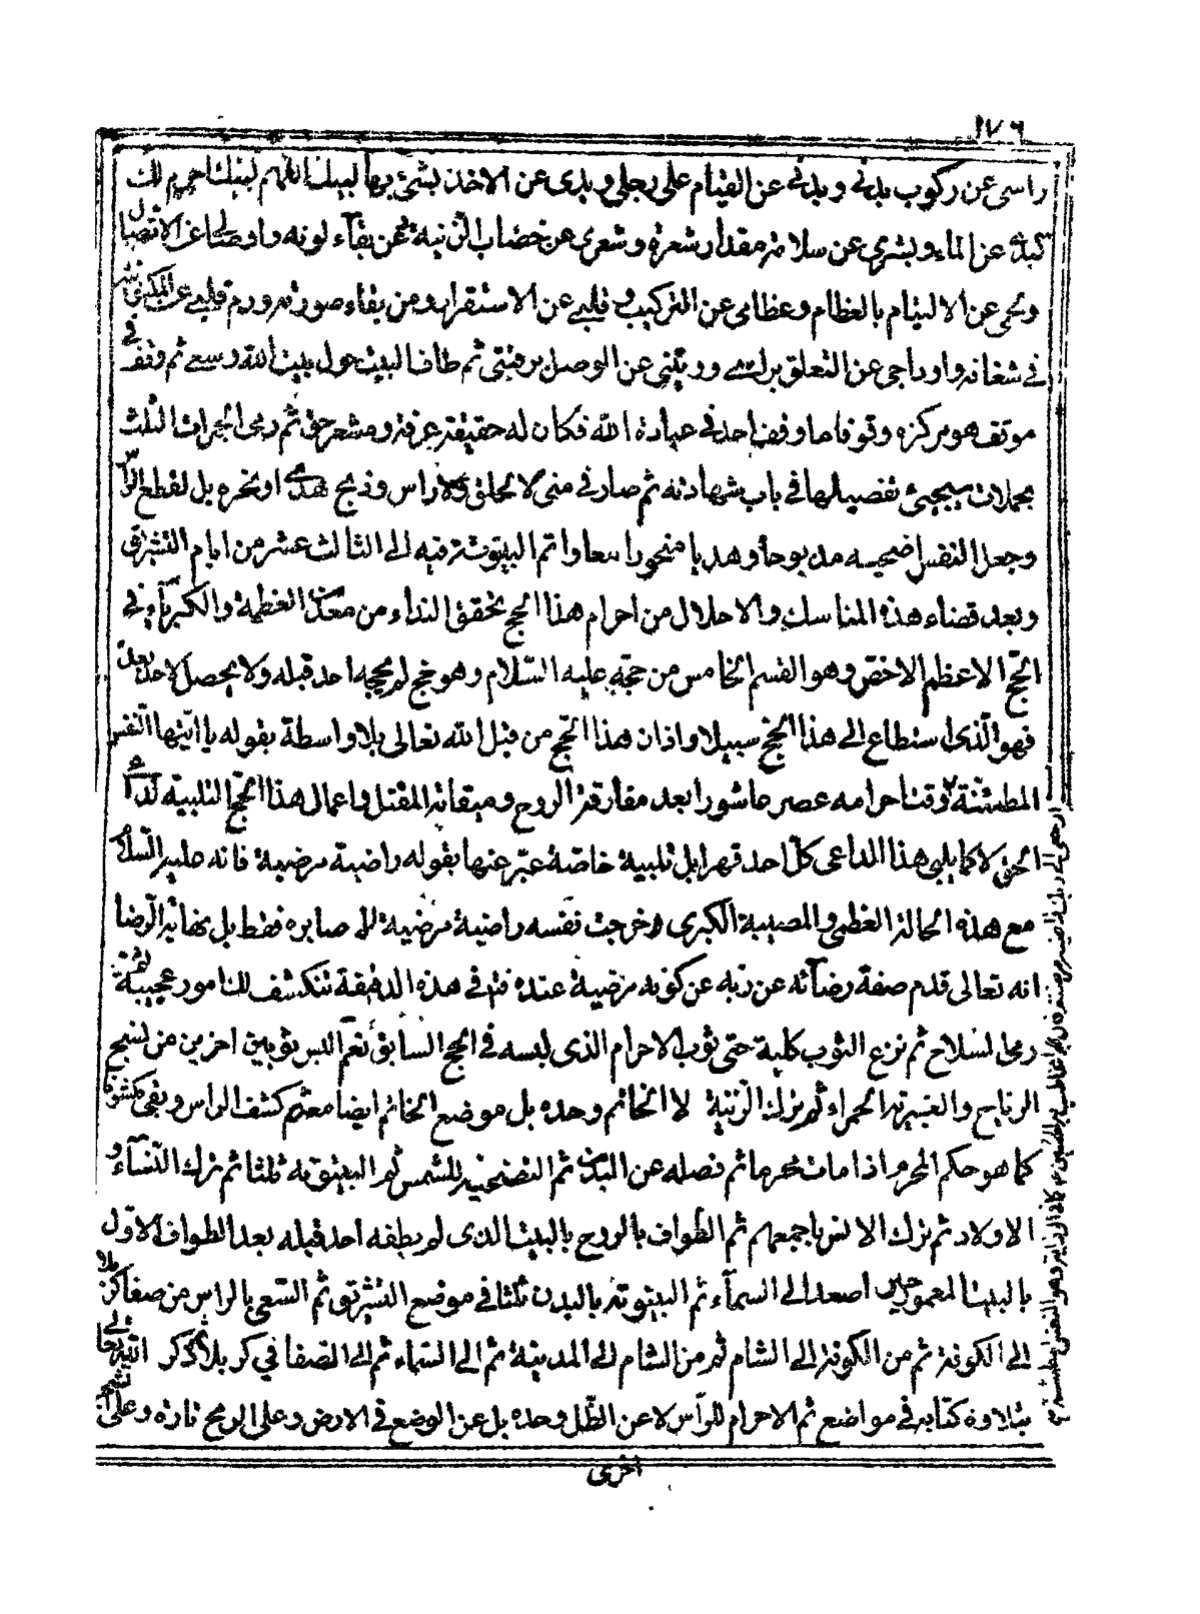 ١٧٦
راسى عن ركوب بدنى وبدنى عن القيام على رجلى ويدى عن الاخذ بشئ بها لبيك اللهم لبيك احرم لك
كبدى عن الماء وبشرى عن سلامة مقدار شعرة وشعرى عن خضاب الزينة بل عن بقاء لونه واوصالى عن الاتصال
ولحمى عن الالتيام بالعظام وعظامى عن التركيب وقلبى عن الاستقرار ومن بقاء صورته ودم قلبى عن
فى شغافه واوداجى عن التعلق براسى ورقبتى عن الوصل برقبتى ثم طاف البيت حول بيت الله وسعى ثم وقف فى
موقف هو مركزه وقوفا ما وقف احد فى عبادة الله فكان له حقيقة عرفة ومشعر حق ثم رمى الجمرات الثلث
بحملات سيجئ تفصيلها فى باب شهادته ثم صار فى منى لا لحلق الراس وذبح هدى او نحره بل لقطع الراس
وجعل النفس اضحية مذبوحا وهديا منحورا سعا واتم البيتوتة فيه الى الثالث عشر من ايام التشريق
وبعد قضاء هذه المناسك والاحلال من احرام هذا الحج تحقق النداء من معدن العظمة والكبرياء فى
الحج الاعظم الاخص وهو القسم الخامس من حجه عليه السلام وهو حج لم يحجه احد قبله ولا يحصل لاحد بعده
فهو الذى استطاع الى هذا الحج سبيلا واذان هذا الحج من قبل الله تعالى بلا واسطة بقوله يا ايتها النفس
المطمئنة وقت احرامه عصر عاشورا بعد مفارقة الروح وميقاته المقتل واعمال هذا الحج التلبية لداعى
الحق لا كما يلبى هذا الداعى كل احد قهرا بل تلبية خاصة عبر عنها بقوله راضية مرضية فانه عليه السلام
مع هذه الحالة العظمى والمصيبة الكبرى وخرجت نفسه راضية مرضية لله صابره فقط بل بنهاية الرضا
انه تعالى قدم صفة رضائه عن ربه عن كونه مرضية عنده فتد فى هذه الدقيقة تنكشف لك امور عجيبة ثم
رمى السلاح ثم نزع الثوب كلية حتى ثوب الاحرام الذى لبسه فى الحج السابق نعم البس ثوبين اخرين من نسج
الرياح والغبرة الحمراء ثم ترك الزينة لا الخاتم وحده بل موضع الخاتم ايضا معه ثم كشف الراس وبقى مكشوفا
كما هو حكم المحرم اذا مات محرما ثم فصله عن البدن ثم التضحية للشمس ثم البيتوتة ثلثا ثم ترك النساء و
الاولاد ثم ترك الانس باجمعهم ثم الطواف بالروح بالبيت الذى لم يطفه احد قبله بعد الطواف الاول
بالبيت المعمور حين اصعد الى السماء ثم البيتوتة بالبدن ثلثا فى موضع التشريق ثم السعى بالراس من صفا كربلا
الى الكوفة ثم من الكوفة الى الشام ثم من الشام الى المدينة ثم الى السماء ثم الى الصفا فى كربلا ثم ذكر الله تعالى
بتلاوة كتابه فى مواضع ثم الاحرام للراس لا عن الظل وحده بل عن الوضع فى الارض وعلى الرمح تارة وعلى
اخرى
ارجعى الى ربك راضية مرضية